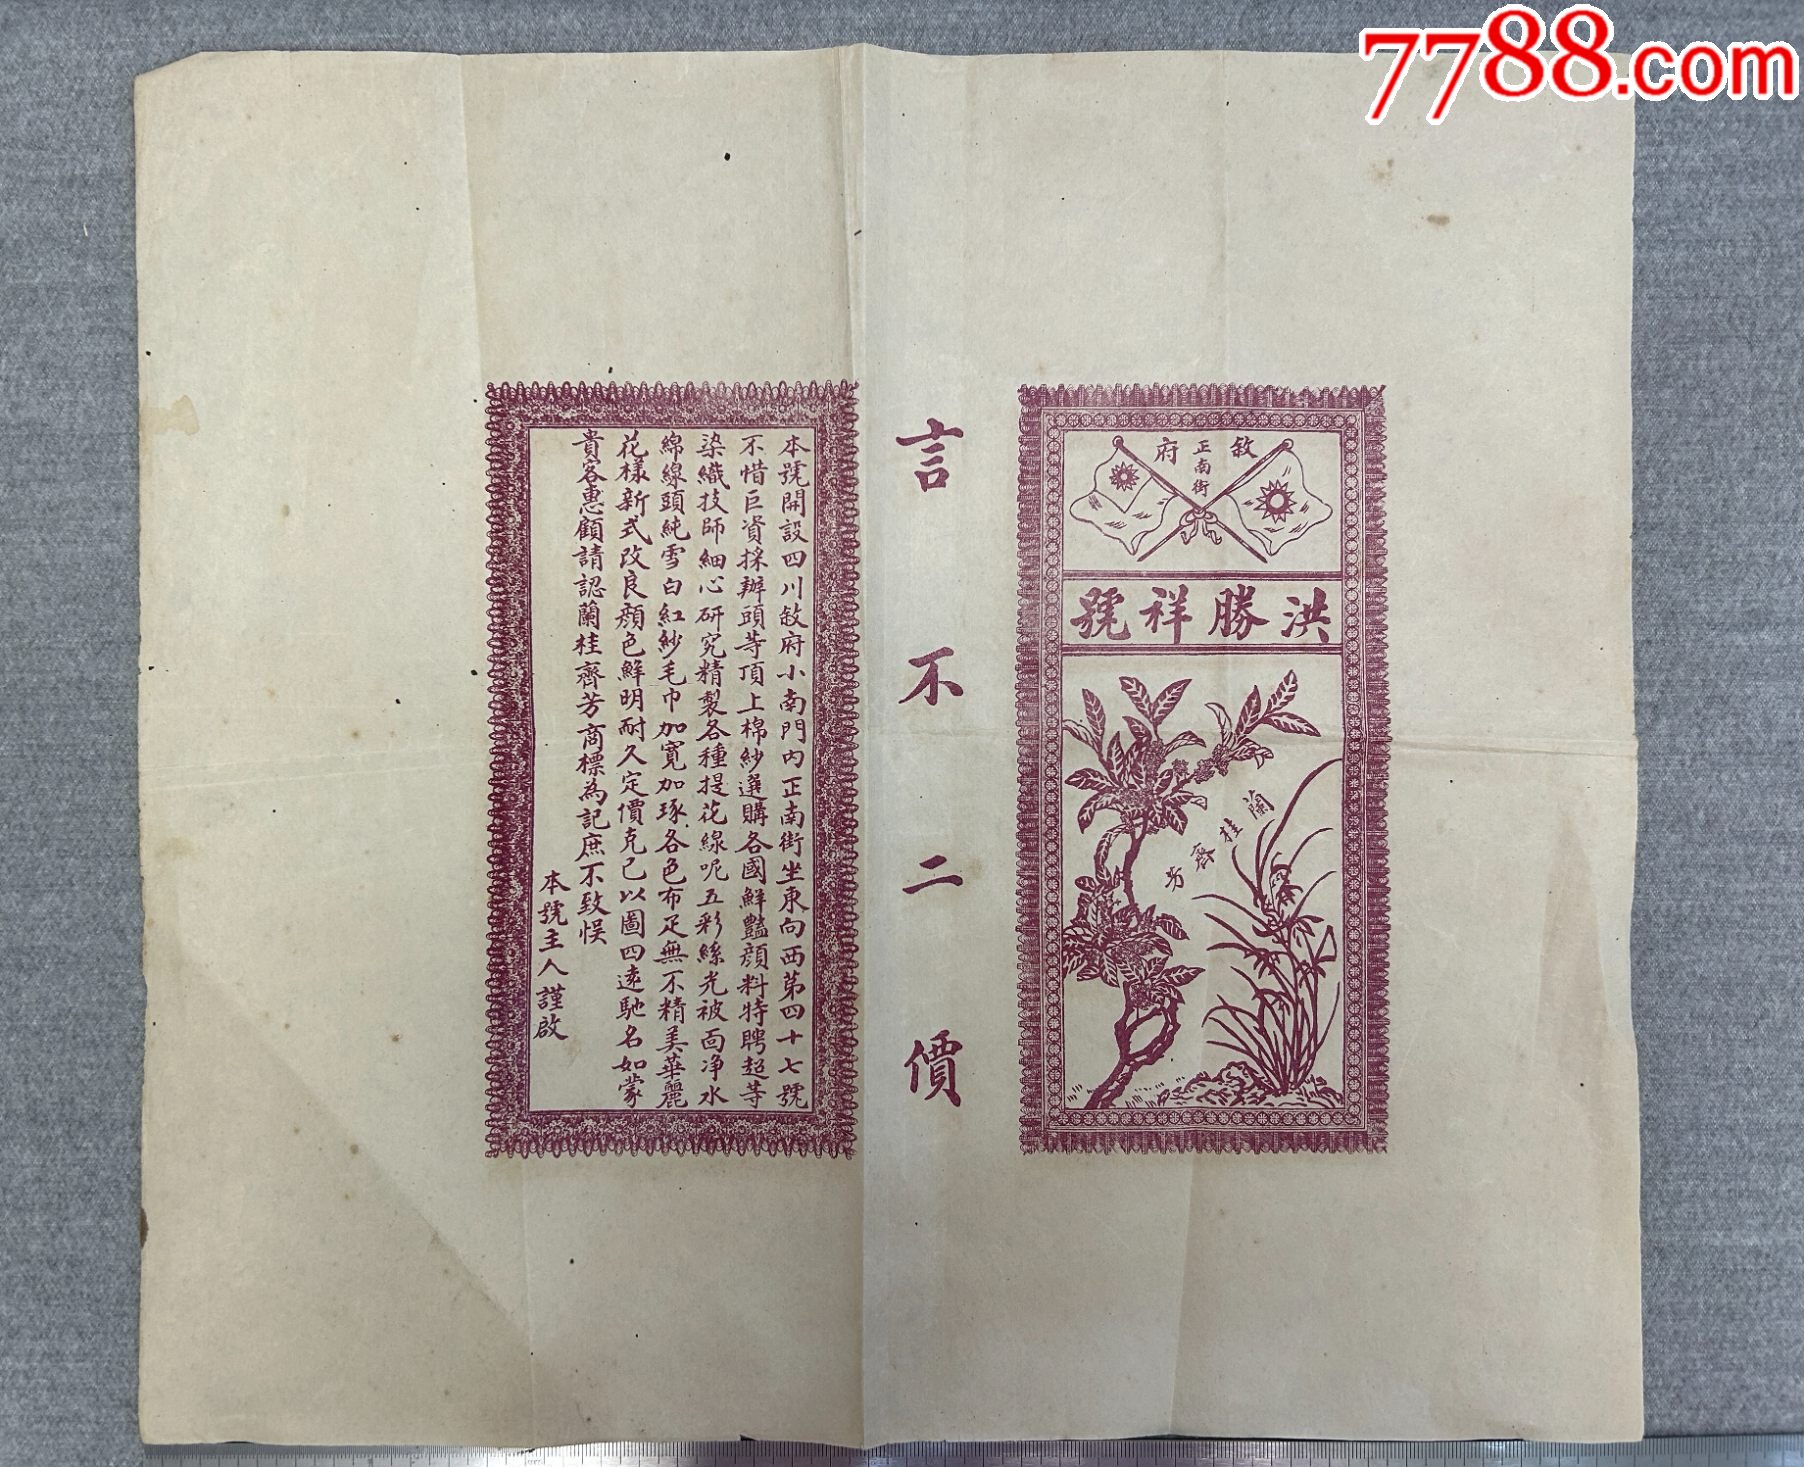 7788.com
敘府
正南街
洪勝祥號
蘭桂齊芳
言不二價
本號開設四川敘府小南門內正南街坐東向西第四十七號
不惜巨資採辦頭等頂上棉紗選購各國鮮豔顏料特聘超等
染織技師細心研究精製各種提花線呢五彩絲光被面净水
綿線頭純雪白紅紗毛巾加寬加琢各色布疋無不精美華麗
花樣新式改良顏色鮮明耐久定價克己以圖四遠馳名如蒙
貴客惠顧請認蘭桂齊芳商標為記庶不致悮
本號主人謹啟